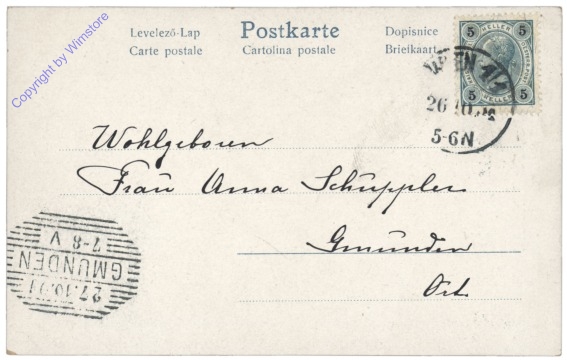 Levelező-Lap Postkarte Dopisnice
Carte postale Cartolina postale Briefkaart
5 HELLER 5
5 HELLER 5
WIEN 1/1
26 10.04
5-6N
Wohlgeboren
Frau Anna Schuppler
Gmunden
Ort
27.10.04
GMUNDEN
7-8 V
Copyright by Wimstore